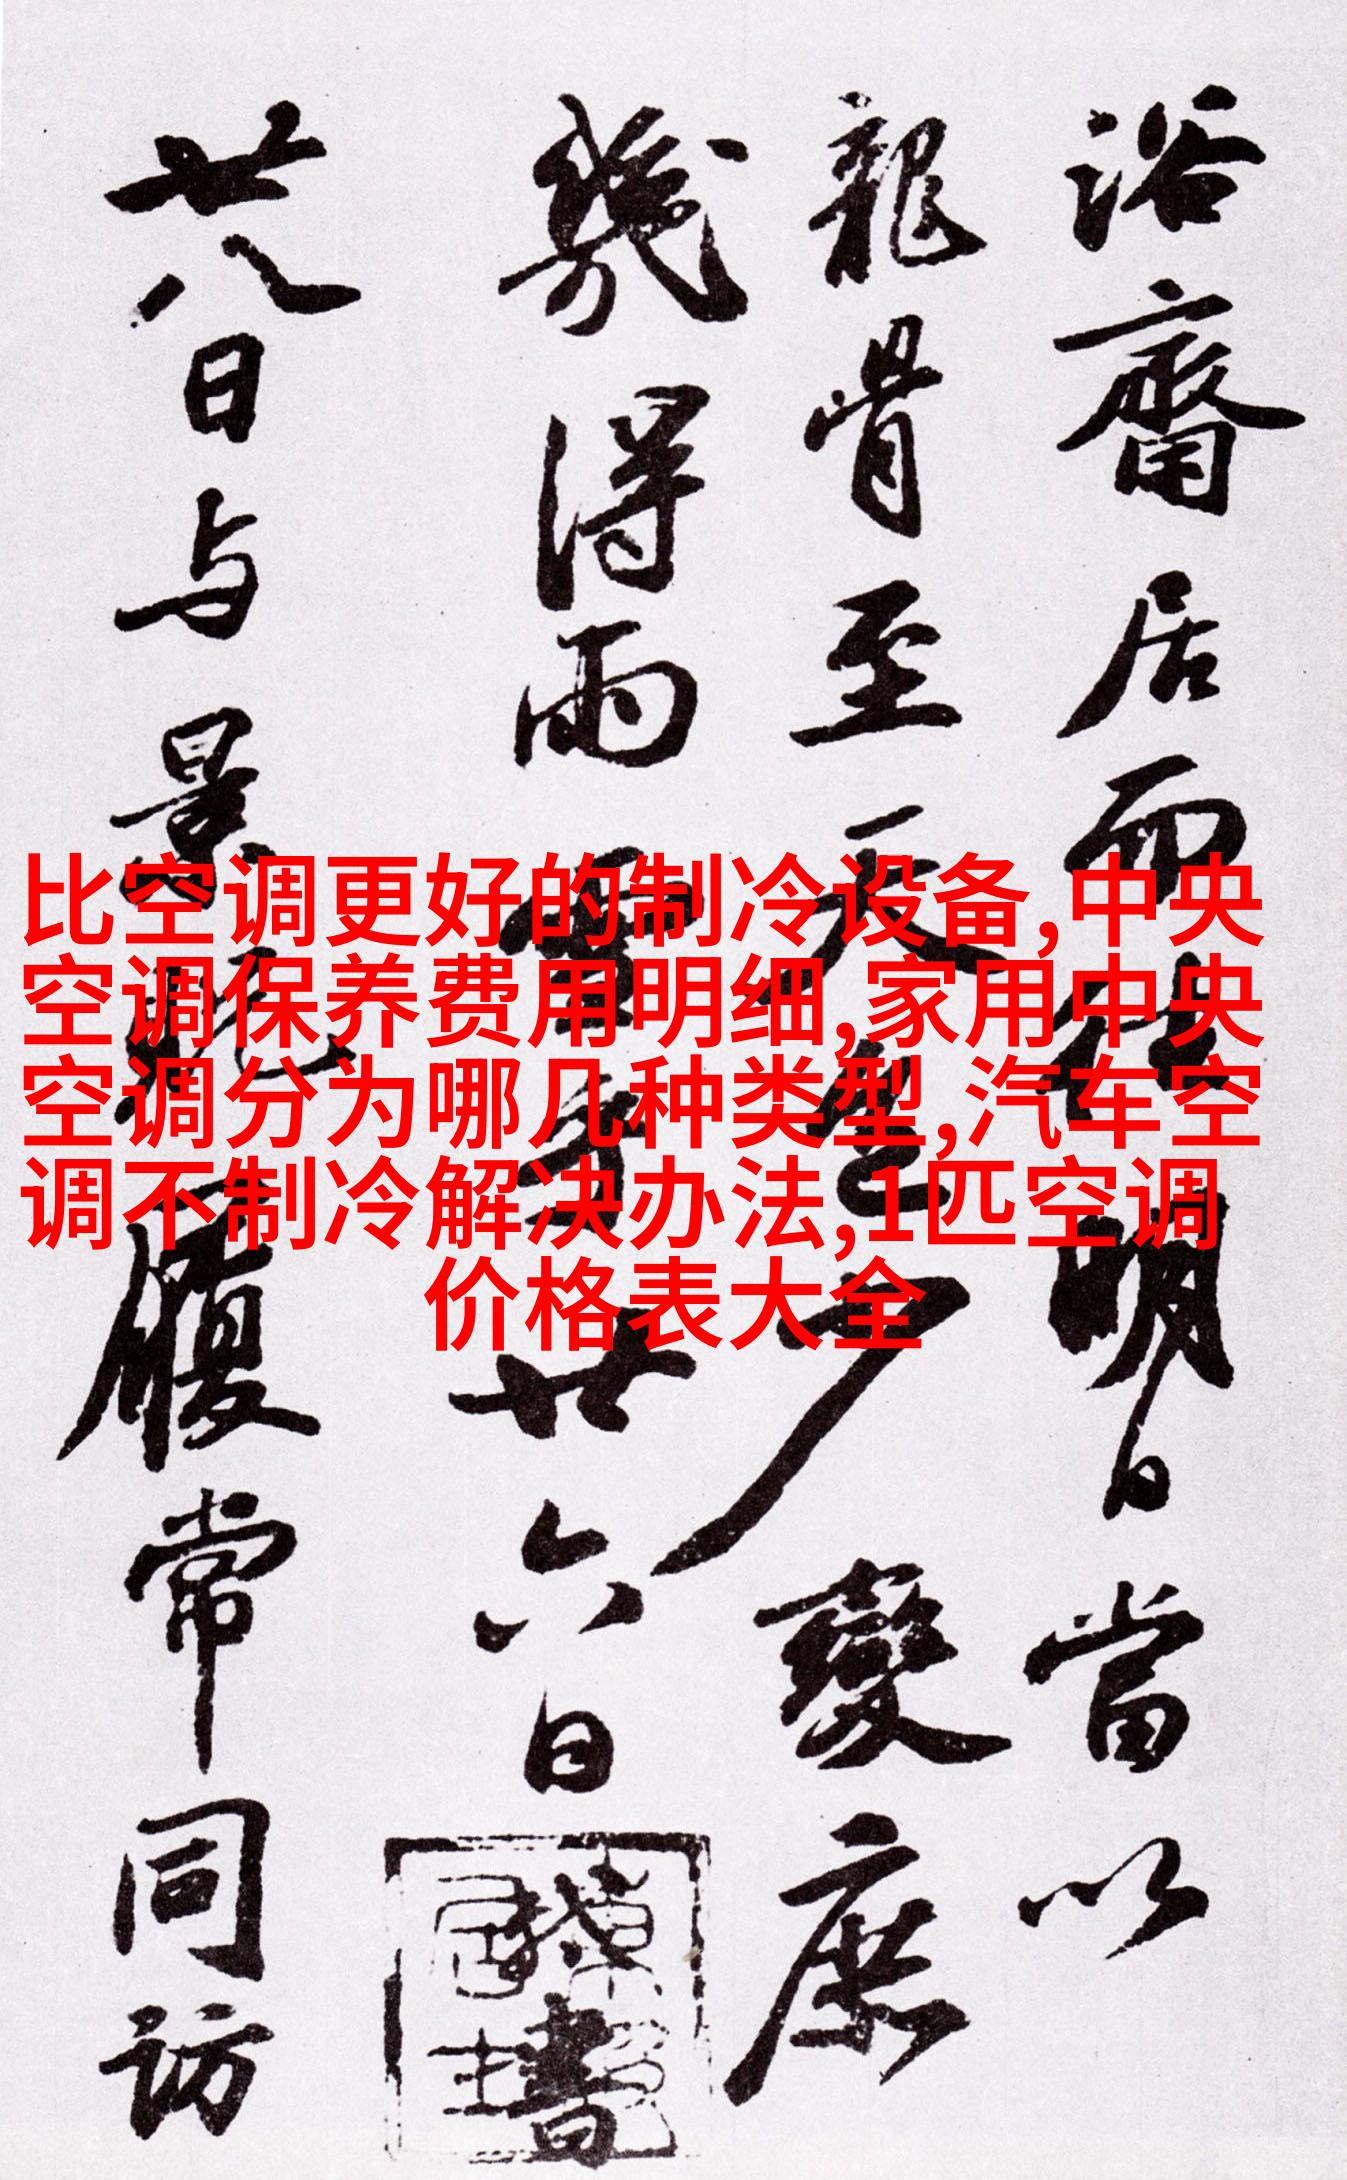 浴齋居而明日當以
龍骨至天少變庶
幾得雨雪耳廿六日
書
廿八日与景貺履常同訪
比空调更好的制冷设备,中央
空调保养费用明细,家用中央
空调分为哪几种类型,汽车空
调不制冷解决办法,1匹空调
价格表大全